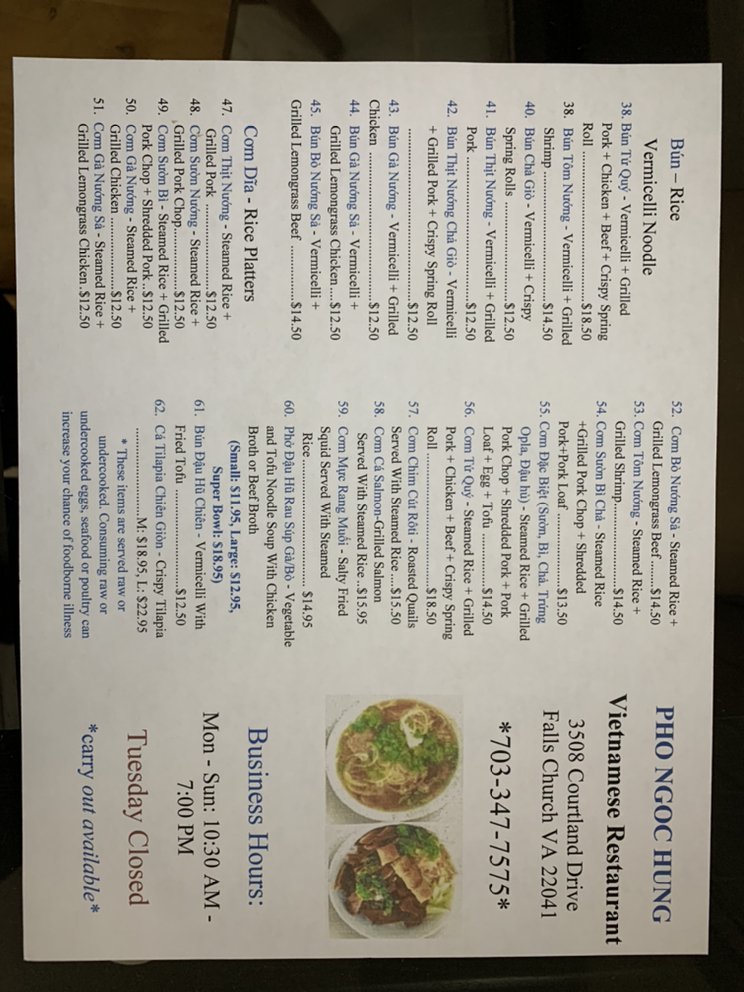 Bún – Rice
Vermicelli Noodle
38. Bún Tứ Quý - Vermicelli + Grilled
Pork + Chicken + Beef + Crispy Spring
Roll ........................................$18.50
38. Bún Tôm Nướng - Vermicelli + Grilled
Shrimp ........................$14.50
40. Bún Chả Giò - Vermicelli + Crispy
Spring Rolls ........................$12.50
41. Bún Thịt Nướng - Vermicelli + Grilled
Pork ........................$12.50
42. Bún Thịt Nướng Chả Giò - Vermicelli
+ Grilled Pork + Crispy Spring Roll
........................................$12.50
43. Bún Gà Nướng - Vermicelli + Grilled
Chicken ........................$12.50
44. Bún Gà Nướng Sả - Vermicelli +
Grilled Lemongrass Chicken....$12.50
45. Bún Bò Nướng Sả - Vermicelli +
Grilled Lemongrass Beef ........$14.50
Cơm Dĩa - Rice Platters
47. Cơm Thịt Nướng - Steamed Rice +
Grilled Pork ....................$12.50
48. Cơm Sườn Nướng - Steamed Rice +
Grilled Pork Chop..............$12.50
49. Cơm Sườn Bì - Steamed Rice + Grilled
Pork Chop + Shredded Pork...$12.50
50. Cơm Gà Nướng - Steamed Rice +
Grilled Chicken..................$12.50
51. Cơm Gà Nướng Sả - Steamed Rice +
Grilled Lemongrass Chicken..$12.50
52. Cơm Bò Nướng Sả - Steamed Rice +
Grilled Lemongrass Beef .......$14.50
53. Cơm Tôm Nướng - Steamed Rice +
Grilled Shrimp....................$14.50
54. Cơm Sườn Bì Chả - Steamed Rice
+Grilled Pork Chop + Shredded
Pork+Pork Loaf ....................$13.50
55. Cơm Đặc Biệt (Sườn, Bì, Chả, Trứng
Opla, Đậu hủ) - Steamed Rice + Grilled
Pork Chop + Shredded Pork + Pork
Loaf + Egg + Tofu ...............$14.50
56. Cơm Tứ Quý - Steamed Rice + Grilled
Pork + Chicken + Beef + Crispy Spring
Roll ........................................$18.50
57. Cơm Chim Cút Rôti - Roasted Quails
Served With Steamed Rice ....$15.50
58. Cơm Cá Salmon-Grilled Salmon
Served With Steamed Rice ..$15.95
59. Cơm Mực Rang Muối - Salty Fried
Squid Served With Steamed
Rice ........................................ $14.95
60. Phở Đậu Hũ Rau Súp Gà/Bò - Vegetable
and Tofu Noodle Soup With Chicken
Broth or Beef Broth
(Small: $11.95, Large: $12.95,
Super Bowl: $18.95)
61. Bún Đậu Hũ Chiên - Vermicelli With
Fried Tofu ........................$12.50
62. Cá Tilapia Chiên Giòn - Crispy Tilapia
........................M: $18.95, L: $22.95
* These items are served raw or
undercooked. Consuming raw or
undercooked eggs, seafood or poultry can
increase your chance of foodborne illness
PHO NGOC HUNG
Vietnamese Restaurant
3508 Courtland Drive
Falls Church VA 22041
*703-347-7575*
Business Hours:
Mon - Sun: 10:30 AM -
7:00 PM
Tuesday Closed
*carry out available*